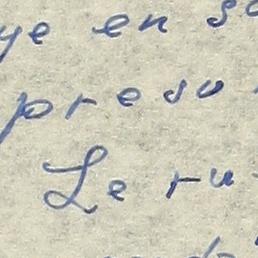 ye en so
preso
Le ru